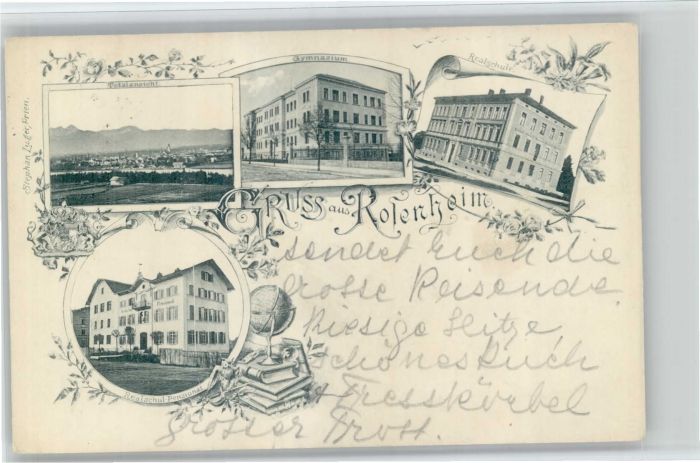 Totalansicht.
Gymnasium
Realschule
Stephan Luger, Prien.
Gruss aus Rosenheim
Realschul-Pensionat
sendet Euch die
grosse Reisende.
Riesige Hitze,
schönes Buch
Fresskörbel
grosser Trost.